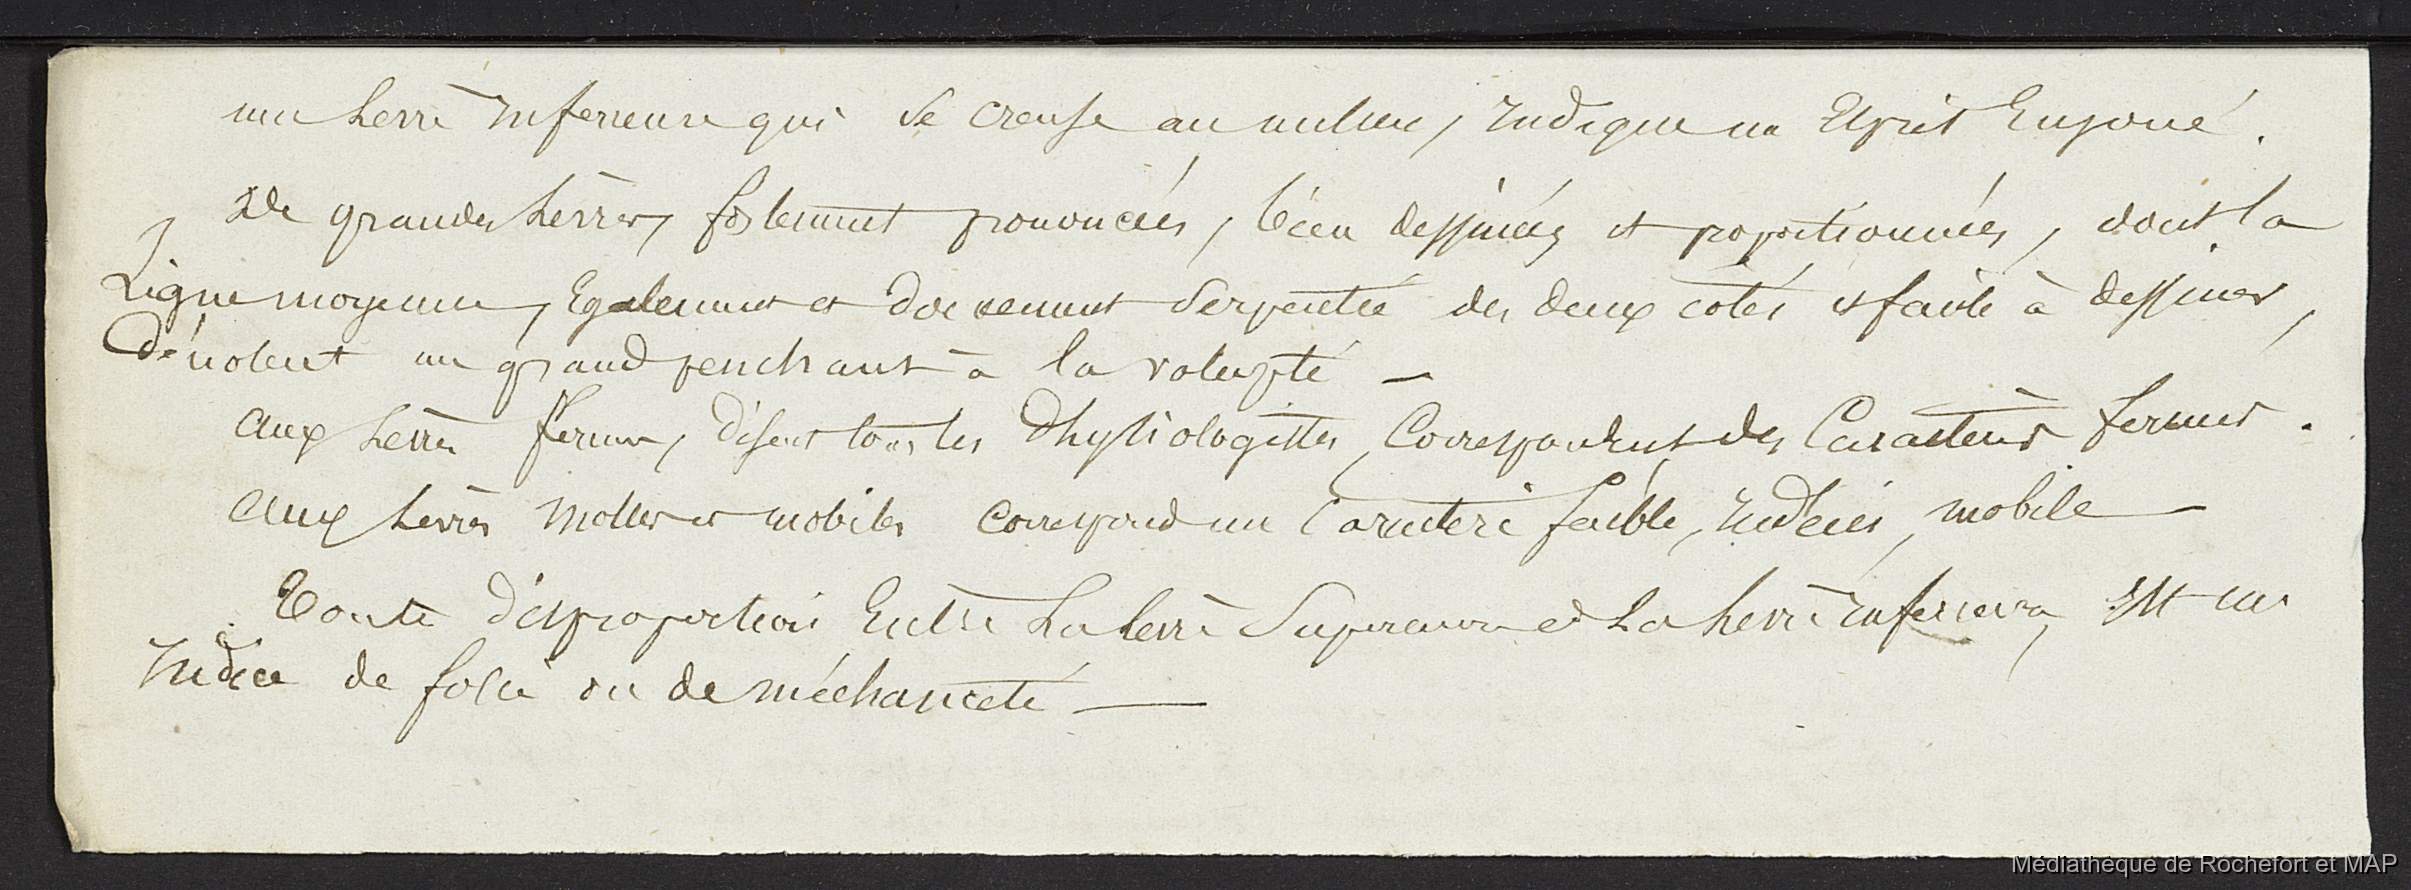 une levre inferieure qui se creuse au milieu, indique un Esprit Enjoué.
De grandes lèvres, fortement prononcées, bien dessinées et proportionnées, dont la
Ligne moyenne, Egalement et serpentée des deux cotés est facile à dessiner,
dénotent un grand penchant à la volupté —
aux levres fermes, disent tous les Physiologistes, Correspondent des Caractères fermes.
aux levres molles et mobiles correspond un Caractere faible, indécis, mobile —
Toute disproportion Entre La levre Superieure et La levre inferieure, Est un
Indice de folie ou de méchanceté —
Médiathèque de Rochefort et MAP